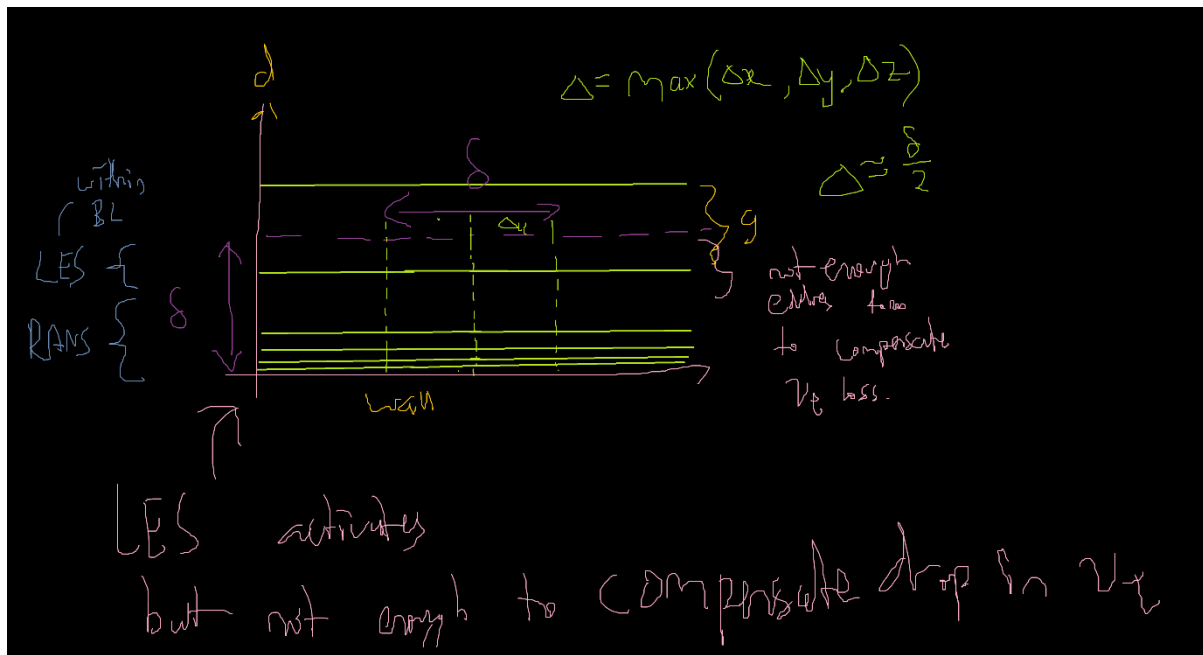 d
Δ = max(Δx, Δy, Δz)
Δ ≃ δ/2
δ
within
BL
Δx
LES
δ
RANS
not enough
eddies
to compensate
ν_t loss.
wall
LES activates
but not enough to compensate drop in ν_t